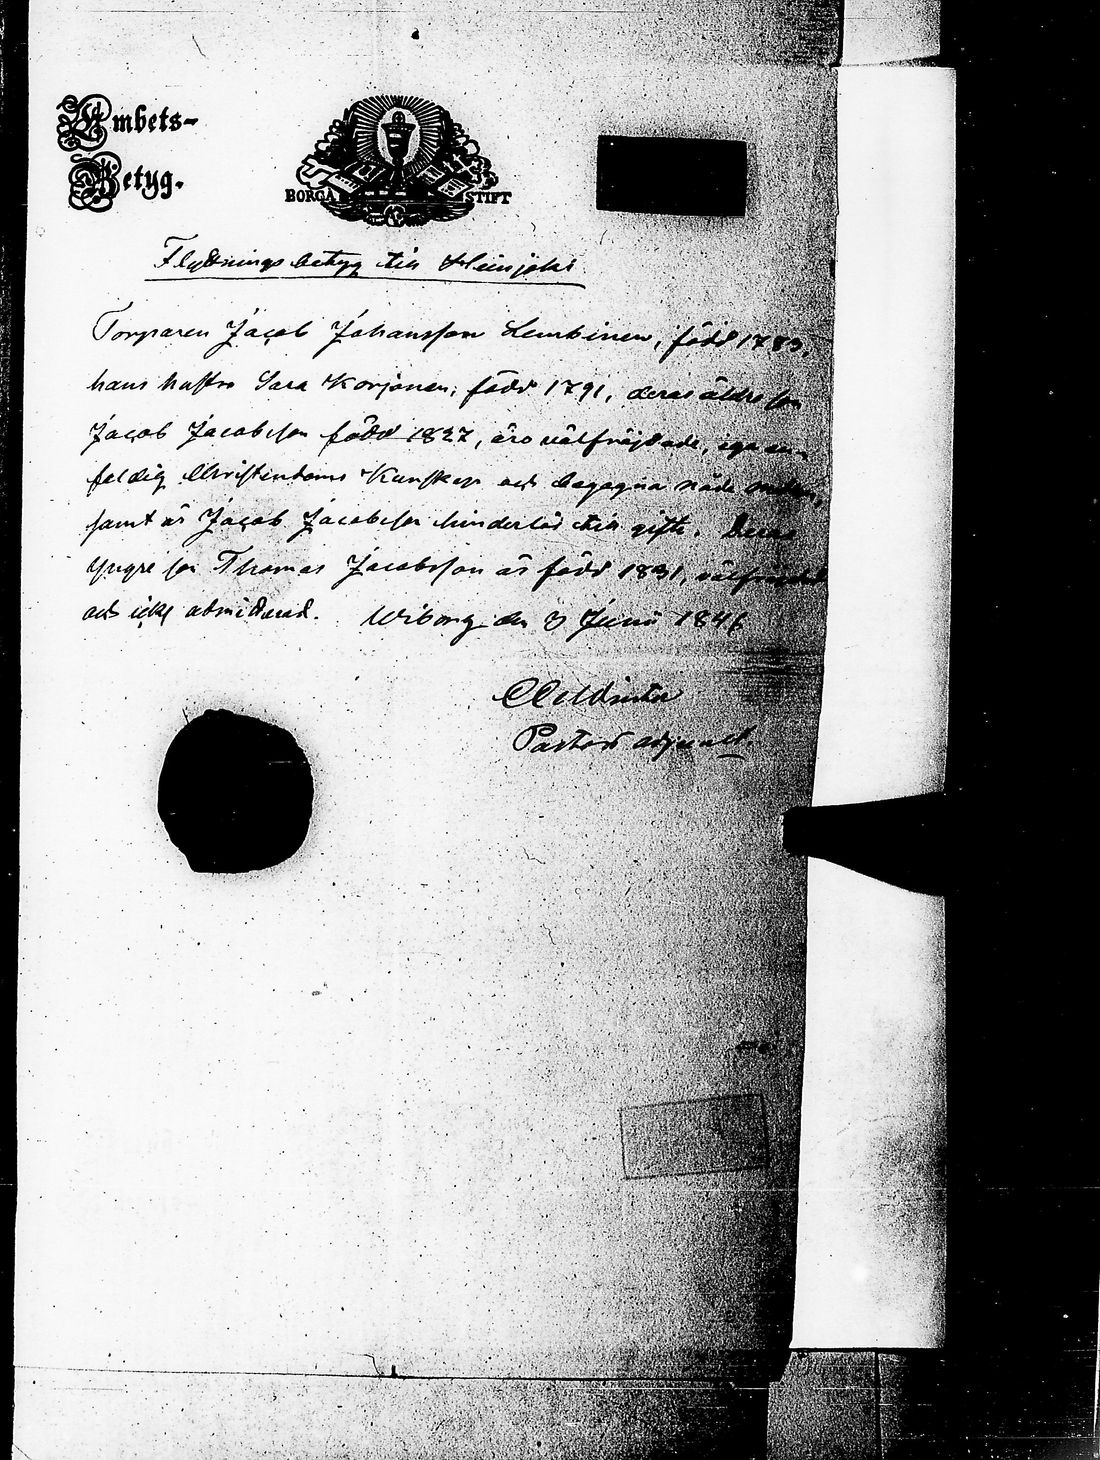 Embets-
Betyg.
BORGÅ STIFT
Flyttnings betyg till Heinjoki
Torparen Jacob Johansson Lembinen, född 1783,
hans hustru Sara Korjonen, född 1791, deras äldre son
Jacob Jacobsson född 1827, äro välfräjdade, ega en-
faldig Christendoms Kunskap och begagna nåde medlen,
samt är Jacob Jacobsson hinderlös till gifte. Deras
yngre son Thomas Jacobsson är född 1831, välfräjdad
och icke admitterad. Wiborg den 3 Junii 1846
Pastors adjunct.